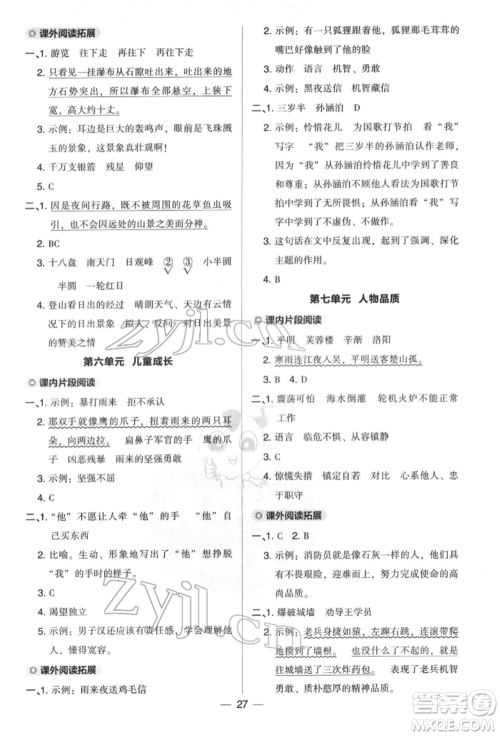 课外阅读拓展
一、1. 游览 往下走 再往下 再往下走
2. 只看见一挂瀑布从石隙吐出来，吐出来的地方石势突出，所以瀑布全部悬空，上狭下宽，高大约十丈。
3. 示例：耳边是巨大的轰鸣声，眼前是飞珠溅玉的景象，这景象真是壮观。
4. 千万支银箭 残星 仰望
5. C
二、1. 因是夜间行路，即不被周围的花草鱼虫吸引，也不会因远处的山景之美而分神。
2. BC
3. 十八盘 南天门 日观峰 ② ③ 小半圆 半圆 一轮红日
4. 登山看日出前 晴朗天气 云雾天气 云雾天气 壮丽景象 拟人、反问 对日出的赞美之情
第六单元 儿童成长
课内片段阅读
一、1. 示例：暴打雨来 雨来拒不承认
2. 那双手就像鹰的爪子，扭着雨来的两只耳朵，向两边拉。 扁鼻子军官的手 鹰的爪子 凶恶残暴 雨来的坚强
3. 示例：坚强不屈
4. C
二、1. “他”不愿让人牵“他”的手 “他”自己买东西
2. 比喻。生动、形象地写出了“他”挣脱“我”的手时的样子。
3. C
4. 渴望独立
5. 示例：男子汉还应该有责任感、重承诺。
课外阅读拓展
一、1. 示例：雨来夜送鸡毛信
2. 示例：有一只狐狸跑了起来，狐狸那毛茸茸的嘴巴好像触到了他的脸
3. 动作 语言 机智、勇敢
4. 示例：黑夜送信 机智藏信
二、1. 三岁半 孙涵泊 D
2. 示例：怜惜花儿 为国歌打节拍 看“我”写字 “我”与孙涵泊认作老师 孙涵泊怜惜花儿中学到了善良和尊重，从孙涵泊为国歌打节拍中学到了无所畏惧，从看“我”写字中学到了不势利。
3. 这句话在文中反复出现，起到了强调、深化主题的作用。
4. B
第七单元 人物品质
课内片段阅读
一、1. 平明 芙蓉楼 辛渐 洛阳
2. 寒雨连江夜入吴，平明送客楚山孤。
3. B D 4. D
二、1. 震荡可怕 海水倒灌 轮机火炉被海水淹没
2. 语言 临危不惧、从容镇静
3. B
4. 惊慌失措 镇定自若 对比 舍己为人、忠于职守
课外阅读拓展
一、1. C 2. B
3. 示例：消防员就像是石灰一样，在烈火的焚烧中依然毫不畏惧，体现了消防员的高尚品质。
二、1. 爆破城墙 劝导王学员
2. 示例：老兵身捷如猿，左蹿右跳，连滚带爬的来到了墙根。 他什么都没了的，就是往城墙墙下送了三次炸药包。 表现了老兵机智勇敢、质朴憨厚的精神品质。
27
zyjl.cn
zyjl.cn